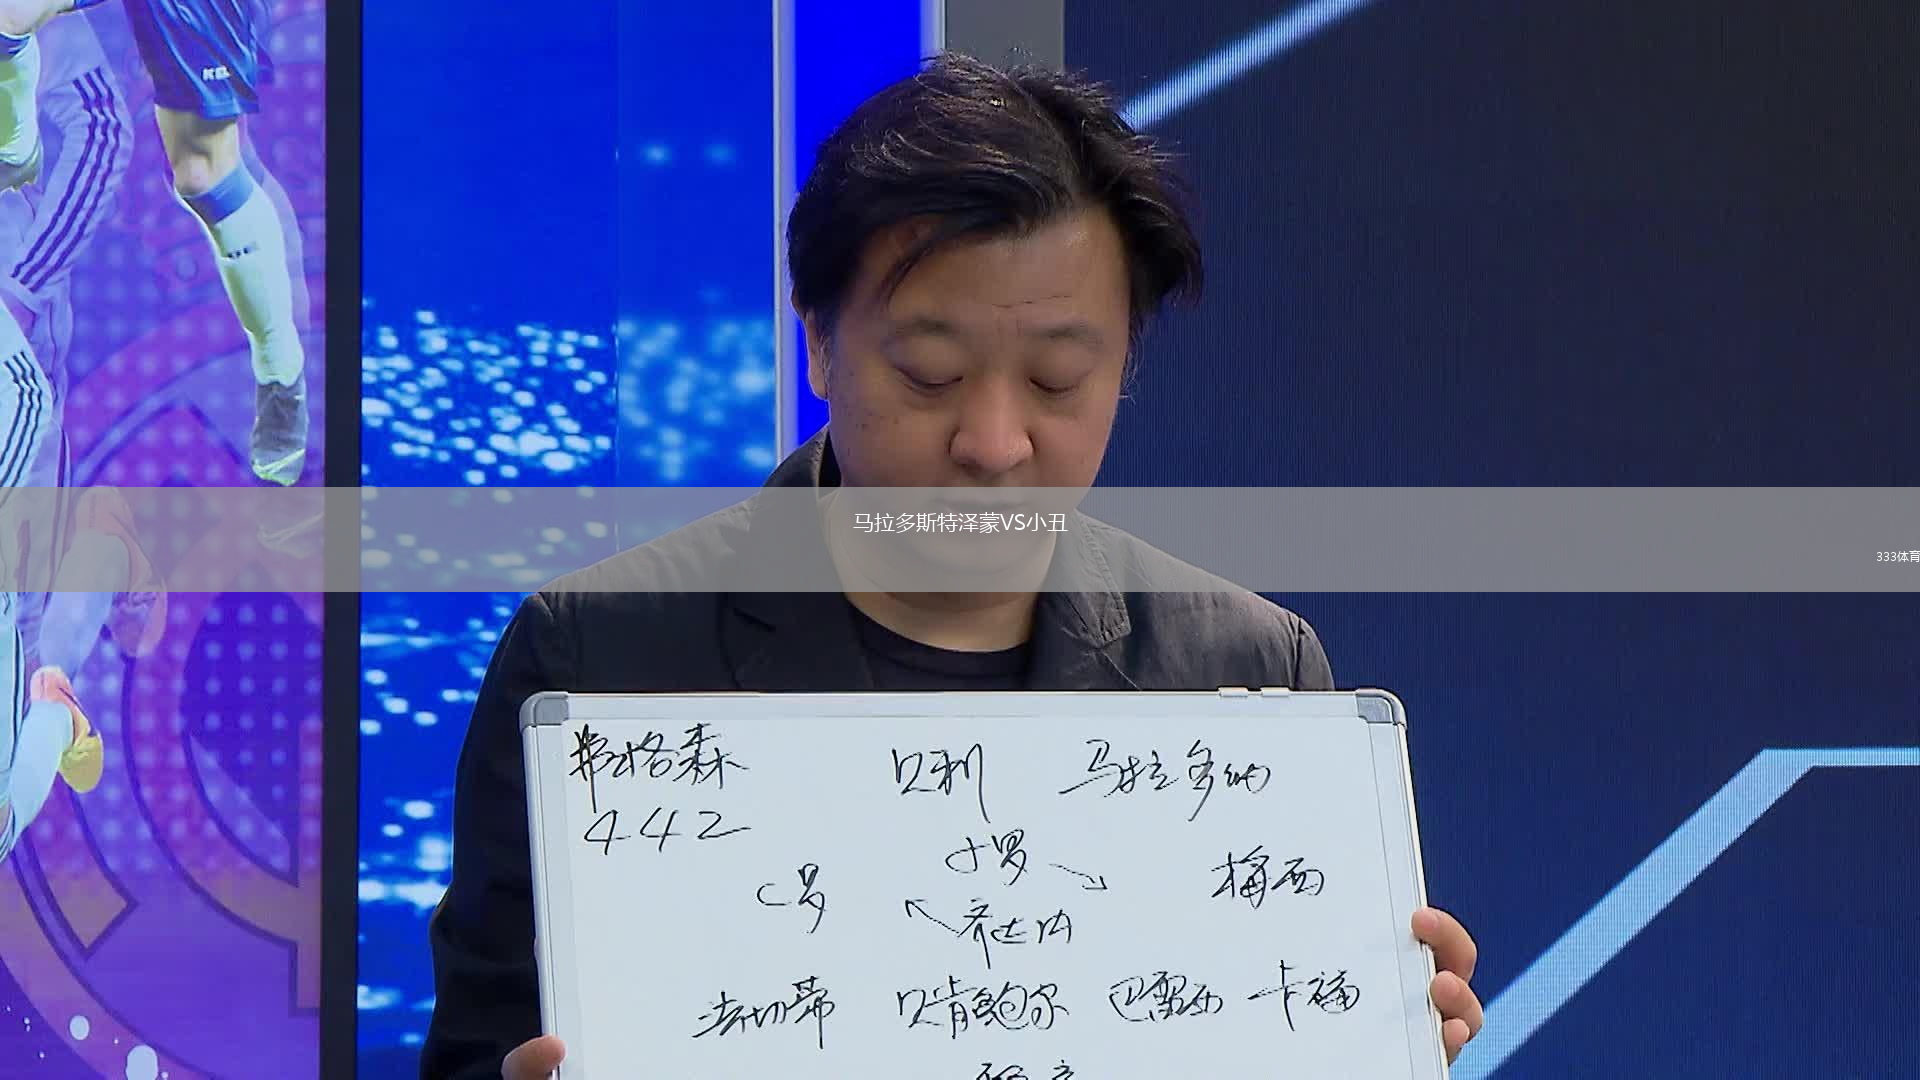 马拉多斯特泽蒙VS小丑
333体育
弗格森 贝利 马拉多纳
442
小罗
C罗 梅西
齐达内
法切蒂 贝肯鲍尔 巴雷西 卡福